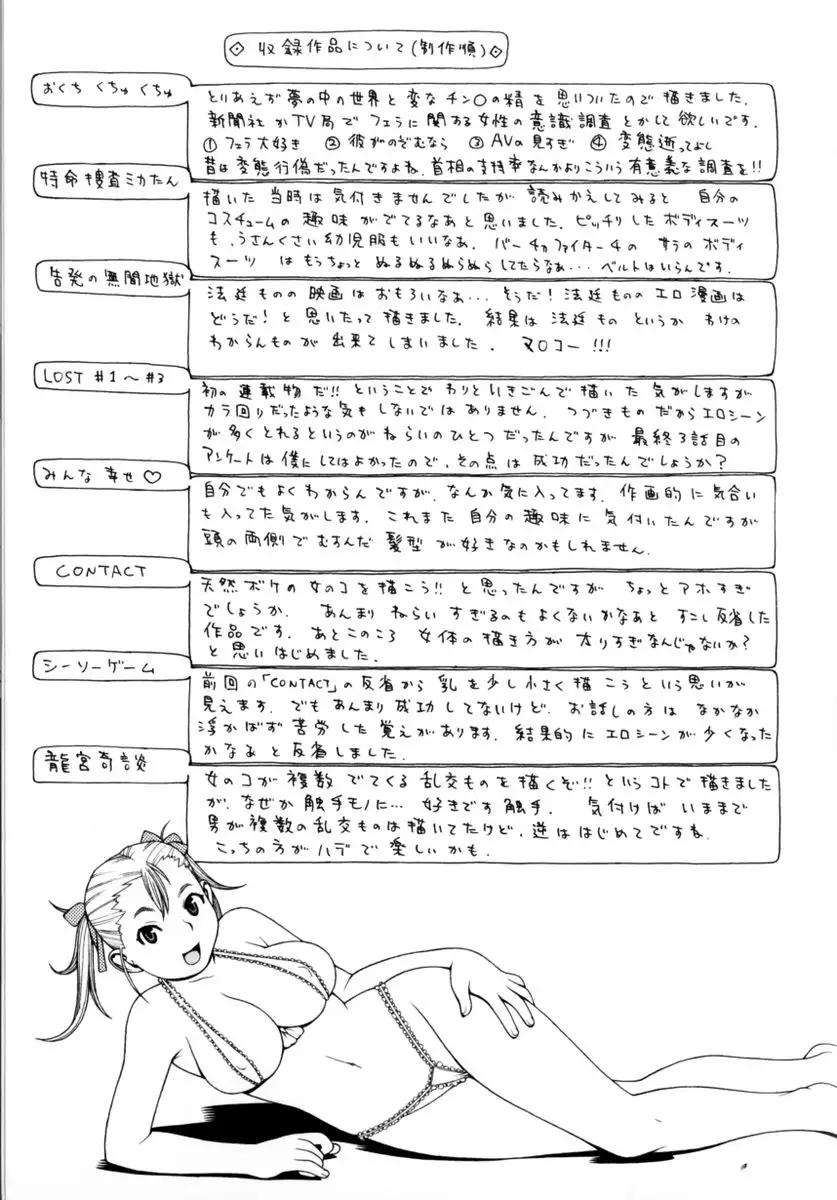 収録作品について(制作順)
おくち くちゅ くちゅ
とりあえず夢の中の世界と変なチン〇の精を思いついたので描きました.
新聞社かTV局でフェラに関する女性の意識調査とかして欲しいです.
①フェラ大好き ②彼がのぞむなら ③AVの見すぎ ④変態逝ってよし
昔は変態行偽だったんですよね.首相の支持率なんかよりこういう有意義な調査を!!
特命捜査ミカたん
描いた当時は気付きませんでしたが読みかえしてみると 自分の
コスチュームの趣味がでてるなあと思いました.ピッチリしたボディスーツ
も.うさんくさい幼児服もいいなあ. バーチャファイター4の サラのボディ
スーツ はもうちょっと ぬるぬるぬらぬらしてたらなぁ… ベルトはいらんです.
告発の無間地獄
法廷ものの映画はおもろいなあ… そうだ!法廷もののエロ漫画は
どうだ!と思いたって描きました. 結果は法廷ものというか わけの
わからんものが出来てしまいました. ヌロコー!!!
LOST #1〜#3
初の連載物だ!!ということでわりといきごんで描いた気がしますが
カラ回りだったような気もしないではありません. つづきものだからエロシーン
が多くとれるというのがねらいのひとつだったんですが 最終3話目の
アンケートは僕にしてはよかったので,その点は成功だったんでしょうか?
みんな 幸せ♡
自分でもよくわからんですが,なんか気に入ってます. 作画的に気合い
も入ってた気がします. これまた自分の趣味に気付いたんですが
頭の両側でむすんだ髪型が好きなのかもしれません.
CONTACT
天然ボケの女のコを描こう!!と思ったんですが ちょっとアホすぎ
でしょうか. あんまりねらいすぎるのもよくないかなあと すこし反省した
作品です.あとこのころ 女体の描き方が 太りすぎなんじゃないか?
と思いはじめました.
シーソーゲーム
前回の「CONTACT」の反省から乳を少し小さく描こうという思いが
見えます.でもあんまり成功してないけど. お話しの方はなかなか
浮かばず苦労した覚えがあります.結果的にエロシーンが少くなった
かなあと反省しました.
龍宮奇談
女のコが複数でてくる乱交ものを描くぞ!!というコトで描きました
が.なぜか触手モノに… 好きです触手. 気付けばいままで
男が複数の乱交ものは描いてたけど,逆ははじめてですね.
こっちの方がハデで楽しいかも.